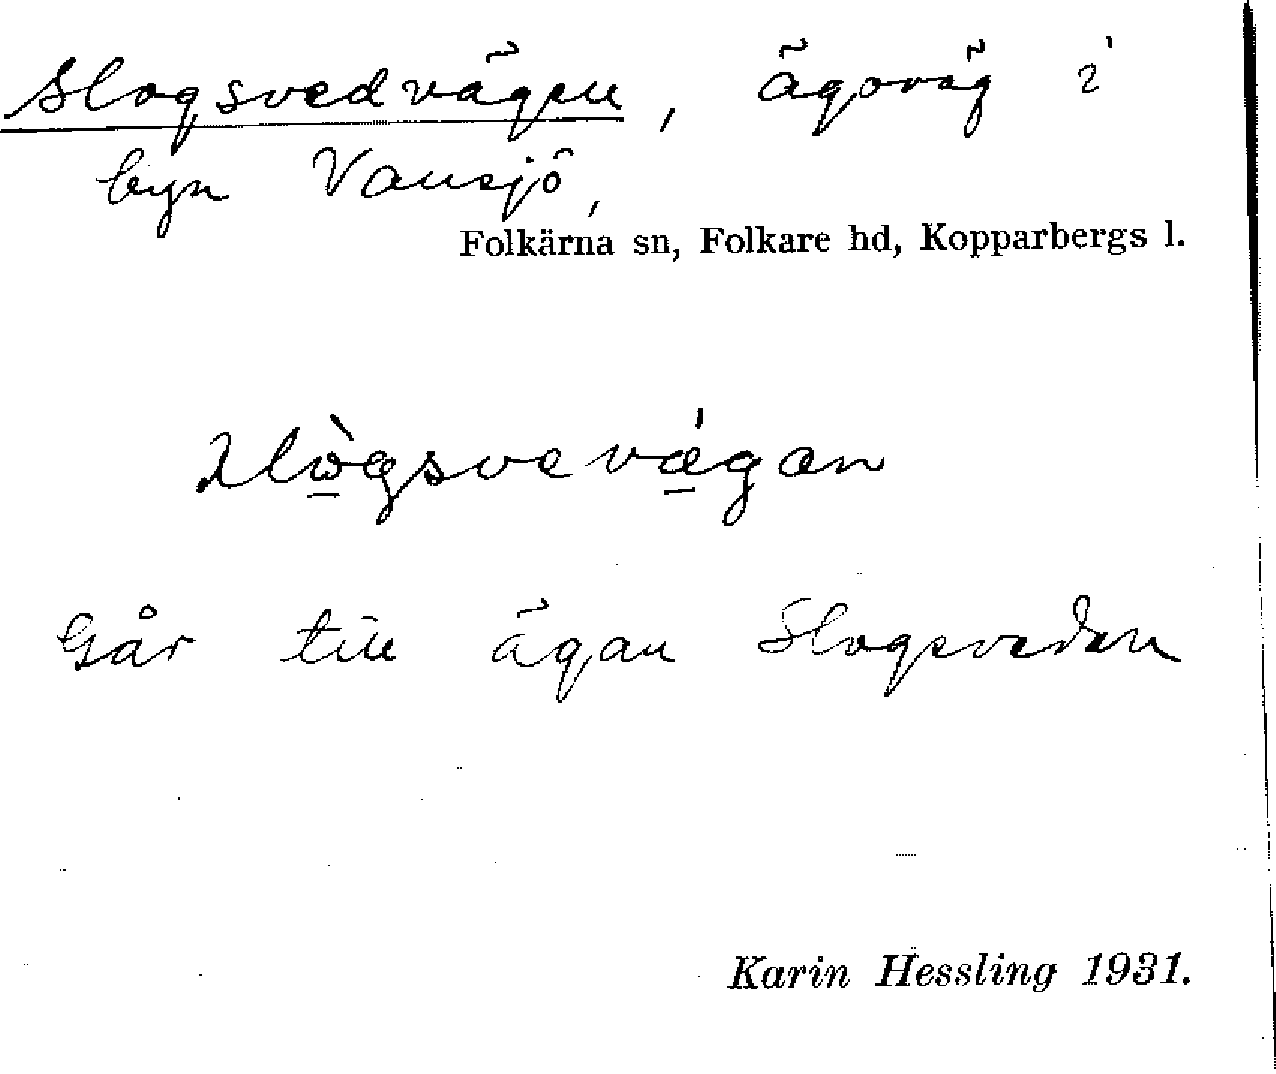 Slogsvedvägen, ägoväg i
byn Vansjö,
Folkärna sn, Folkare hd, Kopparbergs l.
slògsvevǽgan
Går till ägan Slogsveden
Karin Hessling 1931.